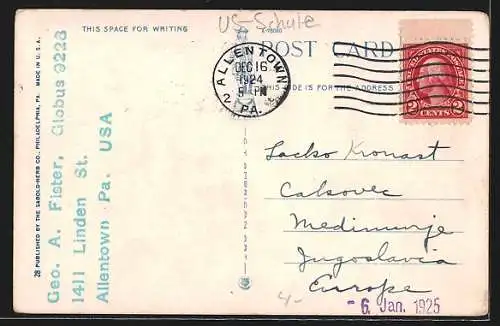 US-Schule
THIS SPACE FOR WRITING
POST CARD
THIS SIDE IS FOR THE ADDRESS
ALLENTOWN
2
DEC 16
1924
5 PM
PA.
UNITED STATES
2 CENTS 2
28 PUBLISHED BY THE SABOLD-HERB CO., PHILADELPHIA, PA. MADE IN U.S.A.
Geo. A. Fister, Globus 9228
1411 Linden St.
Allentown Pa. USA
Lacko Kronast
Cakovec
Medimurje
Jugoslavia
Europe
4-
- 6. Jan. 1925